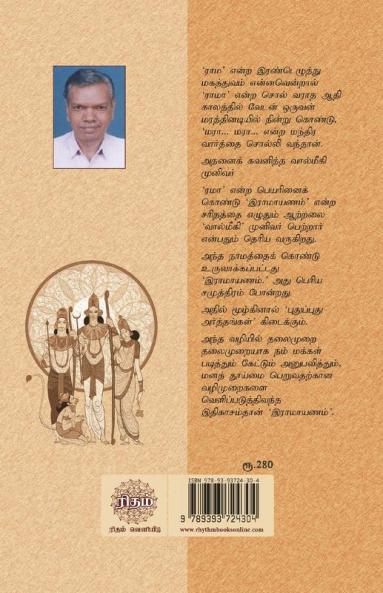 ‘ராம’ என்ற இரண்டெழுத்து
மகத்துவம் என்னவென்றால்
‘ராமா’ என்ற சொல் வராத ஆதி
காலத்தில் வேடன் ஒருவன்
மரத்தினடியில் நின்று கொண்டு,
‘மரா... மரா... என்ற மந்திர
வார்த்தை சொல்லி வந்தான்.
அதனைக் கவனித்த வால்மீகி
முனிவர்
‘ரமா’ என்ற பெயரினைக்
கொண்டு ‘இராமாயணம்’ என்ற
சரிதத்தை எழுதும் ஆற்றலை
‘வால்மீகி’ முனிவர் பெற்றார்
என்பதும் தெரிய வருகிறது.
அந்த நாமத்தைக் கொண்டு
உருவாக்கப்பட்டது
‘இராமாயணம்.’ அது பெரிய
சமுத்திரம் போன்றது.
அதில் மூழ்கினால் ‘புதுப்புது
அர்த்தங்கள்’ கிடைக்கும்.
அந்த வழியில் தலைமுறை
தலைமுறையாக நம் மக்கள்
படித்தும் கேட்டும் அனுபவித்தும்,
மனத் தூய்மை பெறுவதற்கான
வழிமுறைகளை
வெளிப்படுத்திவந்த
இதிகாசம்தான் ‘இராமாயணம்’.
ரூ.280
ரிதம்
ரிதம் வெளியீடு
ISBN 978-93-93724-30-4
9 789393 724304
www.rhythmbooksonline.com